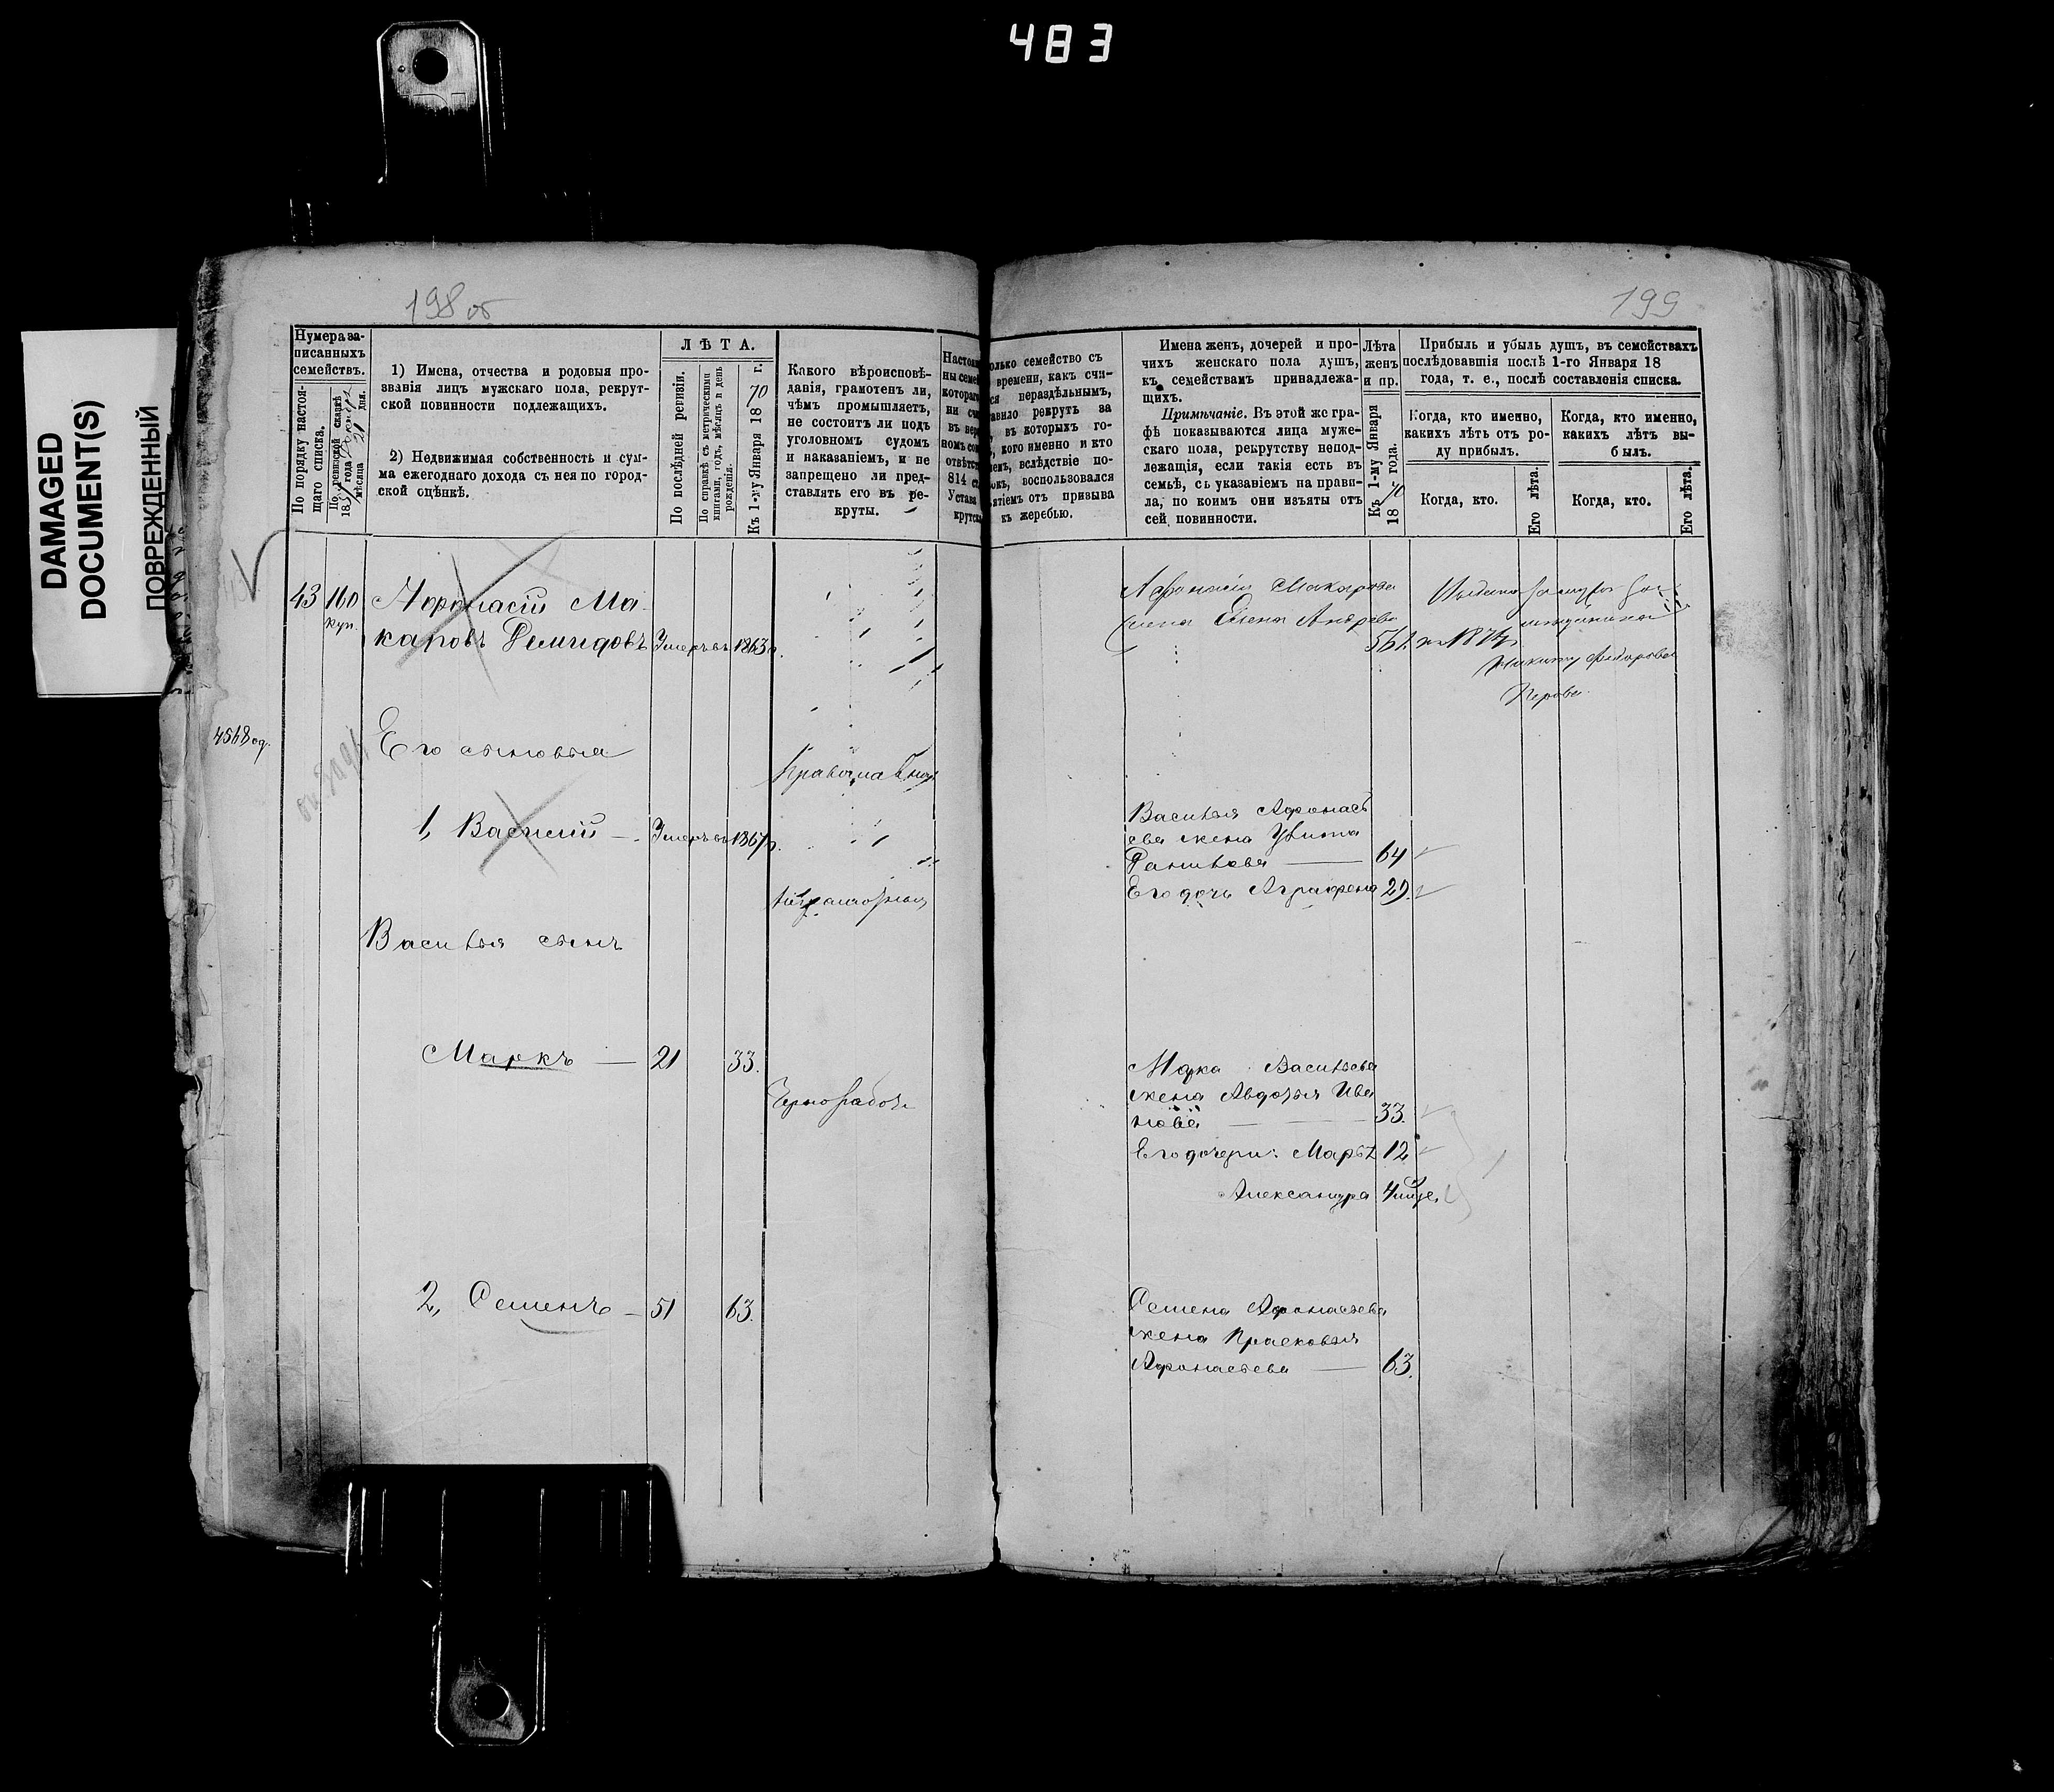 483
DAMAGED
DOCUMENT(S)
ПОВРЕЖДЕННЫЙ
198 об
Нумера за-
писанныхъ
семействъ.
По порядку настоя-
щаго списка.
По ревизской сказкѣ
185 года
мѣсяца 21 дня.
1) Имена, отчества и родовыя про-
званія лицъ мужскаго пола, рекрут-
ской повинности подлежащихъ.
2) Недвижимая собственность и сум-
ма ежегоднаго дохода съ нея по город-
ской оцѣнкѣ.
ЛѢТА.
По послѣдней ревизіи.
По справкѣ съ метрическими
книгами, годъ, мѣсяцъ и день
рожденія.
Къ 1-му Января 1870 г.
Какого вѣроисповѣ-
данія, грамотенъ ли,
чѣмъ промышляетъ,
не состоитъ ли подъ
уголовнымъ судомъ
и наказаніемъ, и не
запрещено ли пред-
ставлять его въ ре-
круты.
43 160
куп.
Афонасій Ма-
каровъ Демидовъ Умеръ въ 1863 г.
4568 од.
Его сыновья
Православнаго
1, Василій — Умеръ въ 1867 г.
Неграмотный
Василья сынъ
Маркъ — 21 33.
Чернорабоч.
2, Семенъ — 51 63.
199
олько семейство съ
времени, какъ счи-
ся нераздѣльнымъ,
авило рекрутъ за
въ которыхъ го-
, кого именно и кто
емъ, вслѣдствіе по-
окъ, воспользовался
ятіемъ отъ призыва
къ жеребью.
Имена женъ, дочерей и про-
чихъ женскаго пола душъ,
къ семействамъ принадлежа-
щихъ.
Примѣчаніе. Въ этой же гра-
фѣ показываются лица муже-
скаго пола, рекрутству непод-
лежащія, если такія есть въ
семьѣ, съ указаніемъ на прави-
ла, по коимъ они изъяты отъ
сей повинности.
Лѣта
женъ
и пр.
Къ 1-му Января
1870 года.
Прибыль и убыль душъ, въ семействахъ
послѣдовавшія послѣ 1-го Января 18
года, т. е., послѣ составленія списка.
Когда, кто именно,
какихъ лѣтъ отъ ро-
ду прибылъ.
Когда, кто.
Его лѣта.
Когда, кто именно,
какихъ лѣтъ вы-
былъ.
Когда, кто.
Его лѣта.
Афонасія Макарова
жена Елена Андреева
56
Никиту Федорова
Василья Афонась
ева жена Улита
— 64
Его дочь Аграфена 29.
Марка Васильева
жена Авдотья Ива
нова — 33.
Его дочери: Марья 12
Александра 4
Семена Афонасьева
жена Прасковья
Афонасьева — 63.